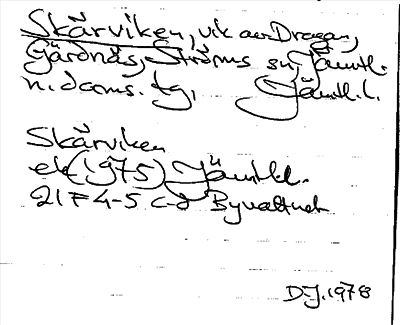 Skärviken, vik av Dragan,
Gärdnäs, Ströms sn, Jämtl.
n. doms. tg, Jämtl. l.
Skärviken
ek (1975) Jämtl.
21F 4-5 c-d Byvattnet
DJ. 1978